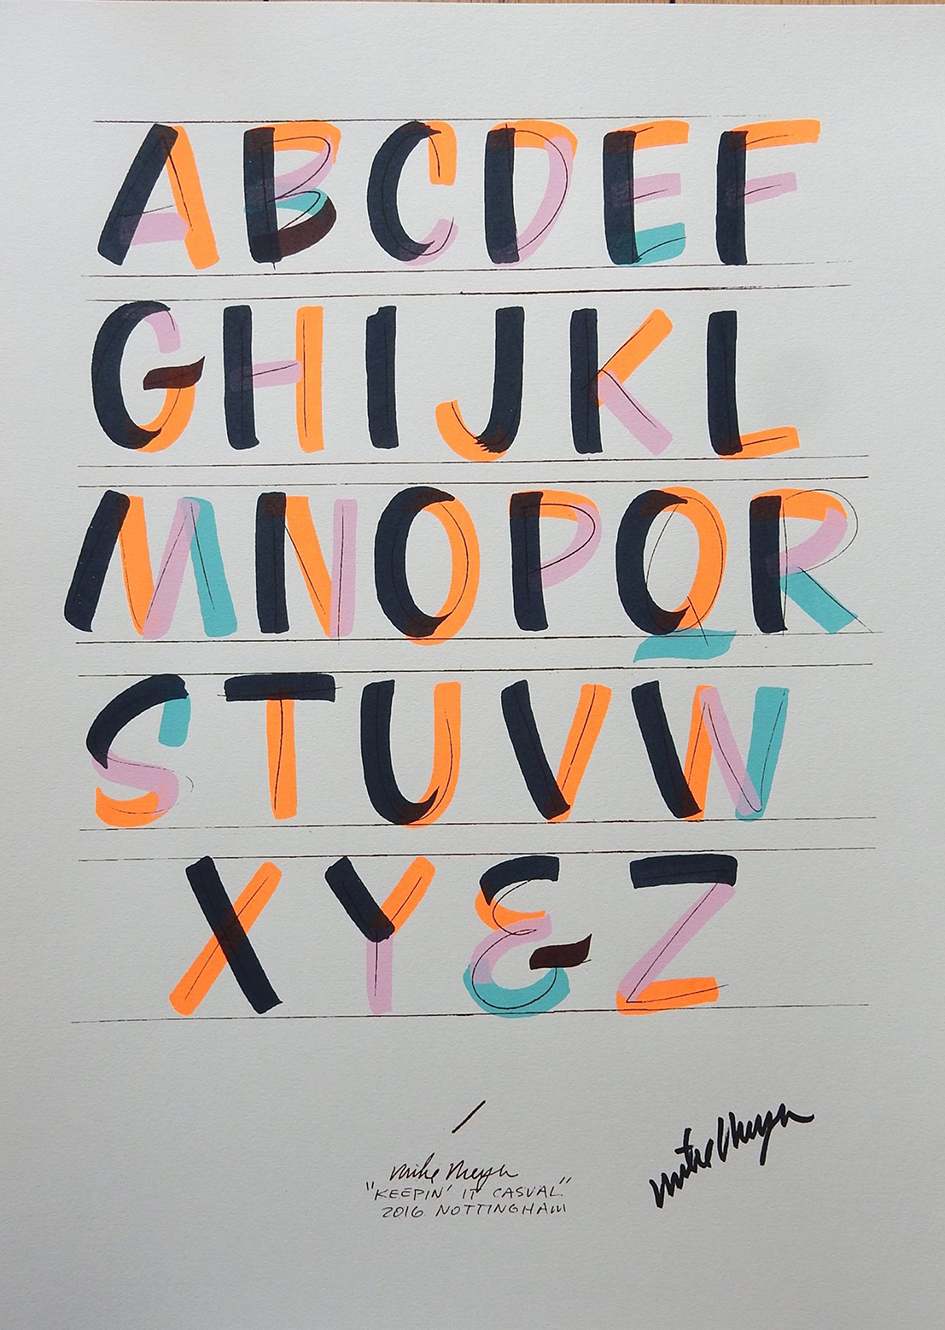 ABCDEF
GHIJKL
MNOPQR
STUVW
XY&Z
mike meyer
"KEEPIN' IT CASUAL"
2016 NOTTINGHAM
mike meyer